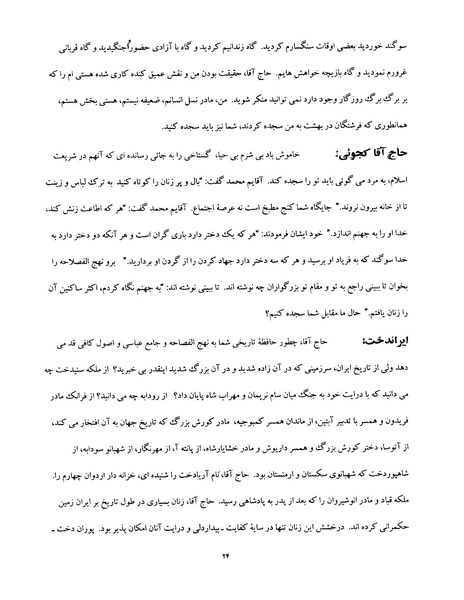 سوگند خوردید بعضی اوقات سنگسارم کردید. گاه زندانیم کردید و گاه با آزادی حضوراً جنگیدید و گاه قربانی
غرورم نمودید و گاه بازیچه خواهش هایم. حاج آقا، حقیقت بودن من و نقش عمیق کنده کاری شده هستی ام را که
بر برگ برگ روزگار وجود دارد نمی توانید منکر شوید. من، مادر نسل انسانم، ضعیفه نیستم، هستی بخش هستم،
همانطوری که فرشتگان در بهشت به من سجده کردند، شما نیز باید سجده کنید.
حاج آقا کجوئی: خاموش باد بی شرم بی حیا، گستاخی را به جائی رسانده ای که آنهم در شریعت
اسلام، به مرد می گوئی باید تو را سجده کند. آقایم محمد گفت: "بال و پر زنان را کوتاه کنید به ترک لباس و زینت
تا از خانه بیرون نروند." جایگاه شما کنج مطبخ است نه عرصهٔ اجتماع. آقایم محمد گفت: "هر که اطاعت زنش کند،
خدا او را به جهنم اندازد." خود ایشان فرمودند: "هر که یک دختر دارد باری گران است و هر آنکه دو دختر دارد به
خدا سوگند که به فریاد او برسید و هر که سه دختر دارد جهاد کردن را از گردن او بردارید." برو نهج الفصلاحه را
بخوان تا ببینی راجع به تو و مقام تو بزرگواران چه نوشته اند. تا ببینی نوشته اند: "به جهنم نگاه کردم، اکثر ساکنین آن
را زنان یافتم." حال ما مقابل شما سجده کنیم؟
ایراندخت: حاج آقا، چطور حافظهٔ تاریخی شما به نهج الفصاحه و جامع عباسی و اصول کافی قد می
دهد ولی از تاریخ ایران، سرزمینی که در آن زاده شدید و در آن بزرگ شدید اینقدر بی خبرید؟ از ملکه سنیدخت چه
می دانید که با درایت خود به جنگ میان سام نریمان و مهراب شاه پایان داد؟ از رودابه چه می دانید؟ از فرانک مادر
فریدون و همسر با تدبیر آبتین، از ماندان همسر کمبوجیه، مادر کورش بزرگ که تاریخ جهان به آن افتخار می کند،
از آتوسا، دختر کورش بزرگ و همسر داریوش و مادر خشایارشاه، از پانته آ، از مهرنگار، از شهبانو سودابه، از
شاهپوردخت که شهبانوی سکستان و ارمنستان بود. حاج آقا، نام آریادخت را شنیده ای، خزانه دار اردوان چهارم را.
ملکه قباد و مادر انوشیروان را که بعد از پدر به پادشاهی رسید. حاج آقا، زنان بسیاری در طول تاریخ بر ایران زمین
حکمرانی کرده اند. درخشش این زنان تنها در سایهٔ کفایت ـ بیداردلی و درایت آنان امکان پذیر بود. پوران دخت ـ
۲۴